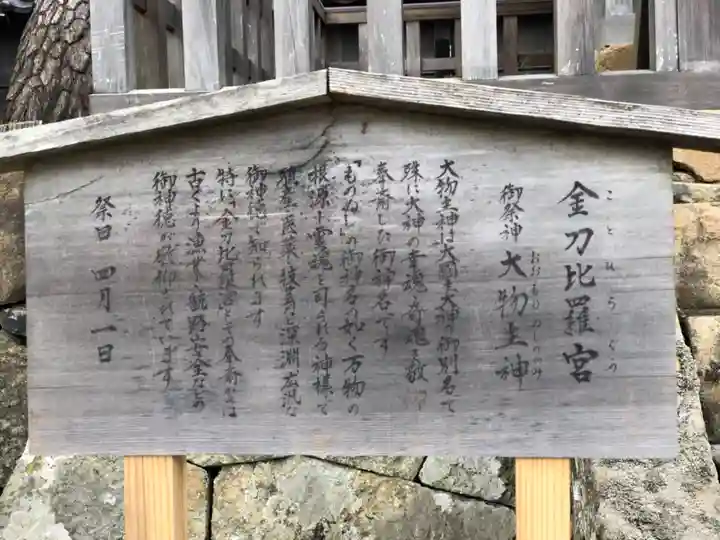 金刀比羅宮
ことひらぐう
御祭神 大物主神
おおものぬしのかみ
大物主神は大国主大神の御別名で
殊に大神の幸魂奇魂を敬って
奉斎した御神名です
「ものぬし」の御神名の如く万物の
根源＝霊魂を司される神様で
殖産
御神徳で知られます
特に金刀比羅宮としての奉斎では
古くより漁業・航路安全などの
御神徳が敬仰されています
祭日 四月一日